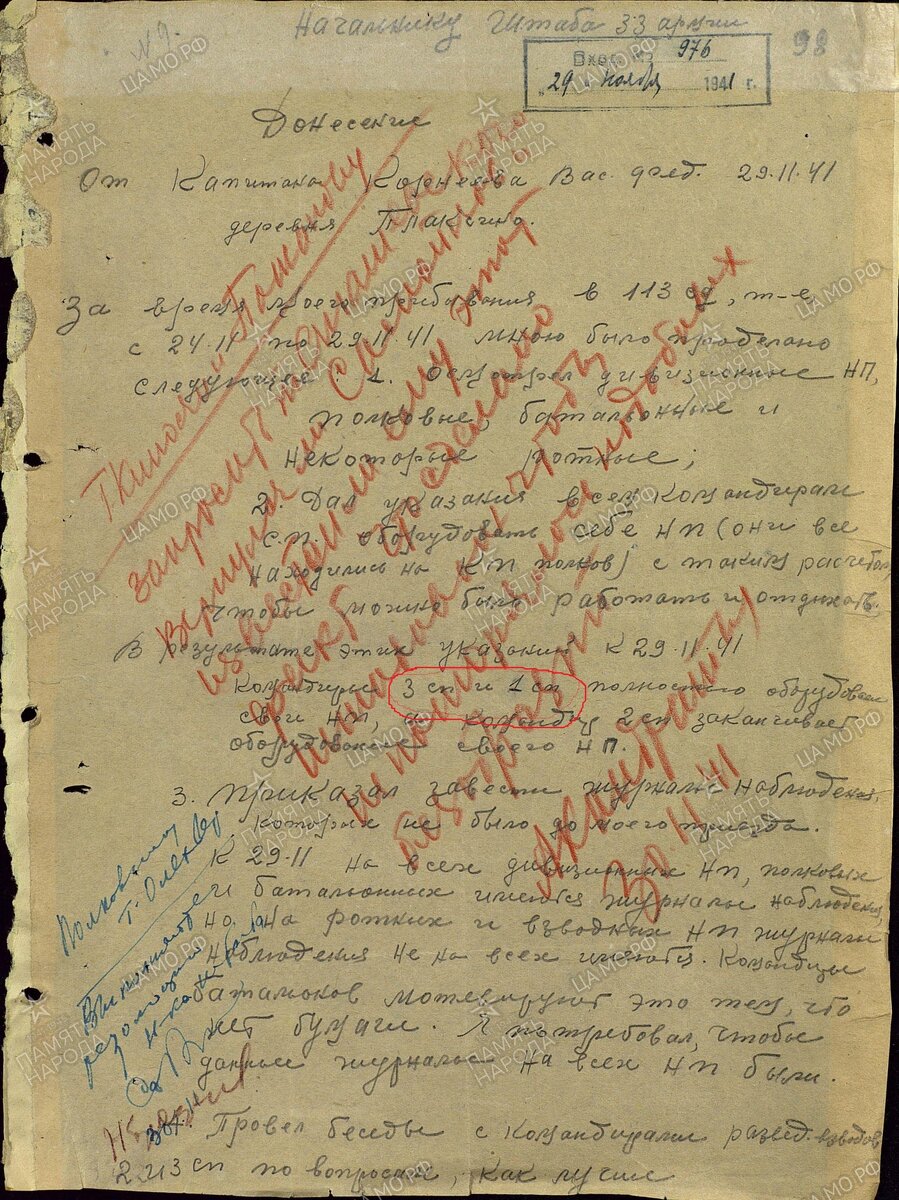 Начальнику Штаба 33 армии
№ 9.
98
Вход. № 976
"29" ноября 1941 г.
Донесение
От Капитана Корнеева Вас. Фед. 29.11.41
деревня Плаксино.
За время моего пребывания в 113 сд, т-е
с 24.11 по 29.11.41 мною было проделано
следующее: 1. Осмотрел дивизионные НП,
полковые, батальонные и
некоторые ротные;
2. Дал указания всем командирам
с.п. оборудовать себе НП (они все
находились на КП полков) с таким расчетом,
чтобы можно было работать и отдыхать.
В результате этих указаний к 29.11.41
командиры 3 сп и 1 сп полностью оборудовали
свои НП, а командир 2 сп заканчивает
оборудование своего НП.
3. Приказал завести журналы наблюдения,
которых не было до моего приезда.
К 29.11 на всех дивизионных НП, полковых
и батальонных имеются журналы наблюдения,
но на ротных и взводных НП журналы
наблюдения не на всех имеются. Командиры
батальонов мотивируют это тем, что
нет бумаги. Я потребовал, чтобы
данные журналы на всех НП были.
Провел беседы с командирами развед. взводов
2 и 3 сп по вопросам, как лучше
запросить
известен ли ему этот
факт и сделано
чтобы
подобных
30.11.41
Полковнику
Выполняйте
резолюцию